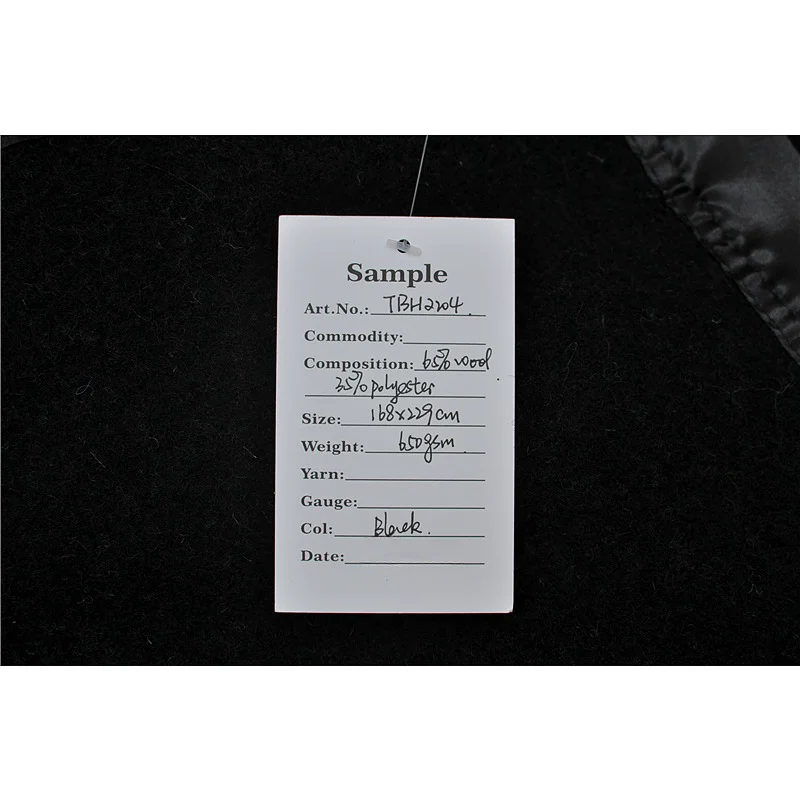 Sample
Art.No.: TBH2204.
Commodity:
Composition: 65% wool
35% polyester
Size: 168x229cm
Weight: 650gsm.
Yarn:
Gauge:
Col: Black.
Date: